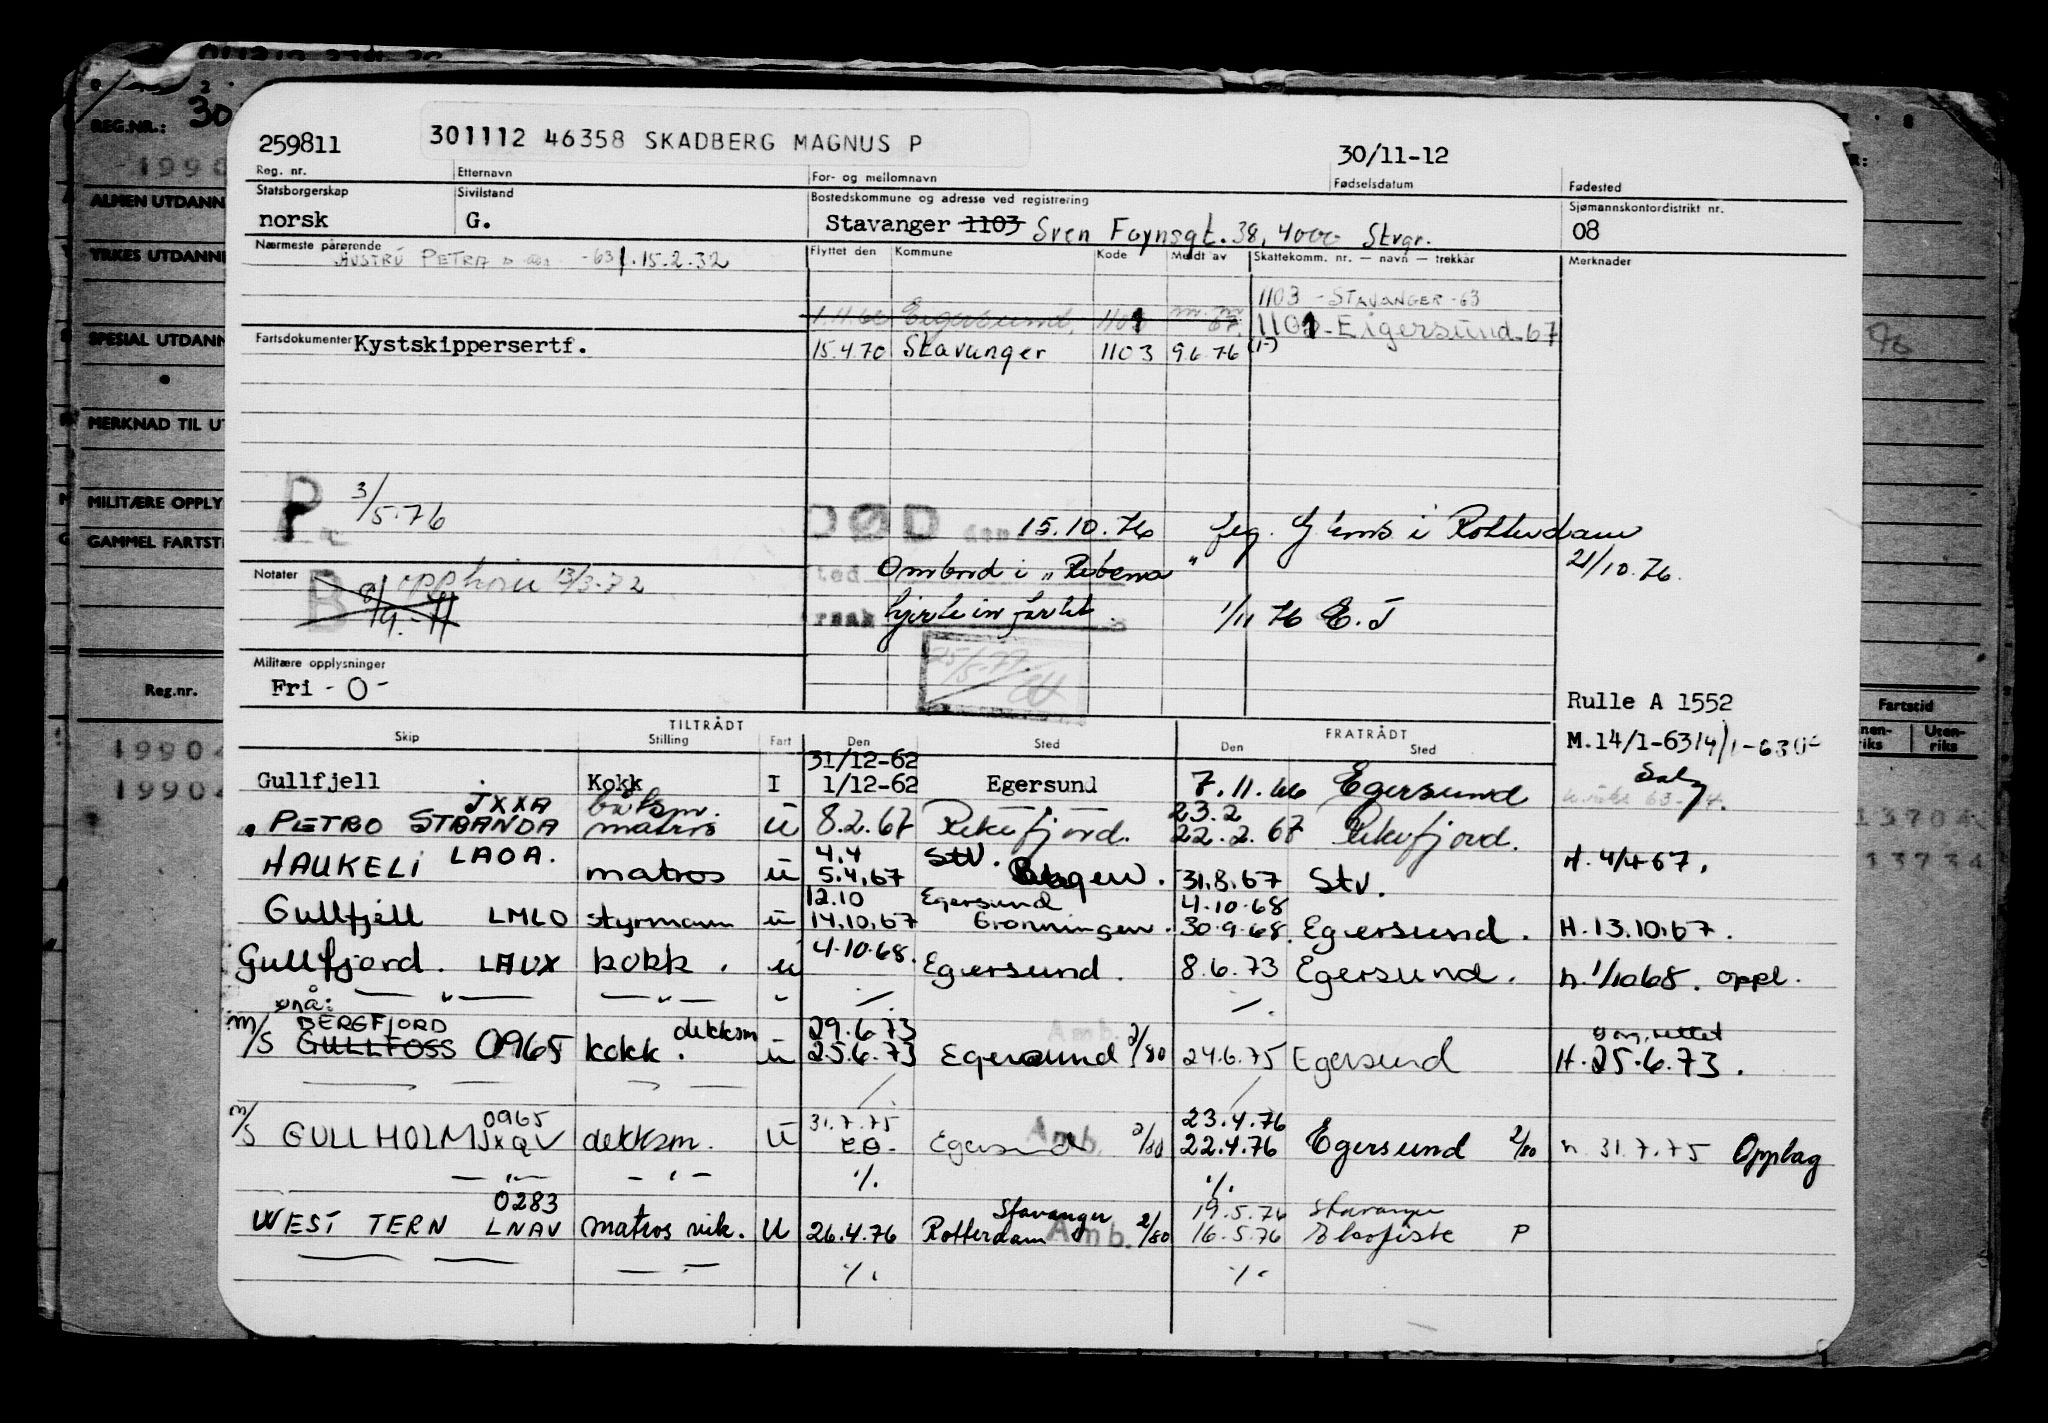 REG.NR.: 30
259811 301112 46358 SKADBERG MAGNUS P 30/11-12
Reg. nr. Etternavn For- og mellomnavn Fødselsdatum Fødested
Statsborgerskap Sivilstand Bostedskommune og adresse ved registrering Sjømannskontordistrikt nr.
norsk G. Stavanger 1103 Sven Foynsgt. 38, 4000 Stvgr. 08
Nærmeste pårørende Flyttet den Kommune Kode Meldt av Skattekomm. nr. — navn — trekkår Merknader
HUSTRU PETRA -63 f. 15.2.32
1103 - STAVANGER - 63
1.11.66 Eigersund 1101 67. 1101 - Eigersund - 67
Fartsdokumenter Kystskippersertf. 15.4.70 Stavanger 1103 9.6.76 (1-)
P 3/5.76
DØD den 15.10.76 i Rotterdam
21/10.76.
Notater B 8/9.-71 opphøir 13/3-72
sted Ombord i "Ribena"
rsak hjerteinfarkt. 1/11 76 E.J
25/5.77.
Militære opplysninger
Fri - O -
Rulle A 1552
TILTRÅDT FRATRÅDT
Skip Stilling Fart Den Sted Den Sted
M.14/1-63
31/12-62
Gullfjell Kokk I 1/12-62 Egersund 7.11.66 Egersund
JXXA båtsm. 23.2
PETRO STRANDA matros U 8.2.67 Rekefjord. 22.2.67 Rekefjord.
LAOA. 4.4 Stv.
HAUKELI matros U 5.4.67 Bergen. 31.8.67 Stv. H. 4/4-67.
12.10 Egersund 4.10.68
Gullfjell LMLO styrmann U 14.10.67 Gronningen. 30.9.68. Egersund. H. 13.10.67.
Gullfjord. LAUX kokk. U 4.10.68. Egersund. 8.6.73 Egersund. h. 1/10 68. oppl.
— " — — " — " ./. ./.
nå:
BERGFJORD dekksm 29.6.73 Amb.
m/s GULLFOSS 0965 kokk. U 25.6.73 Egersund 2/80 24.6.75 Egersund H. 25.6.73.
0965 31.7.75 Amb. 23.4.76
m/s GULLHOLM JXQV dekksm. U Egersund 2/80 22.4.76 Egersund 2/80 h. 31.7.75 Opplag
— " — — " — ./. ./.
0283 Stavanger 19.5.76 Stavanger
WEST TERN LNAV matros vik. U 26.4.76 Rotterdam Amb. 2/80 16.5.76 Ekofiske P
./. ./.
ALMEN UTDANN
YRKES UTDANNE
SPESIAL UTDANN
MERKNAD TIL UT
MILITÆRE OPPLY
GAMMEL FARTSTI
Reg.nr.
Fartstid
nen-riks Uten-riks